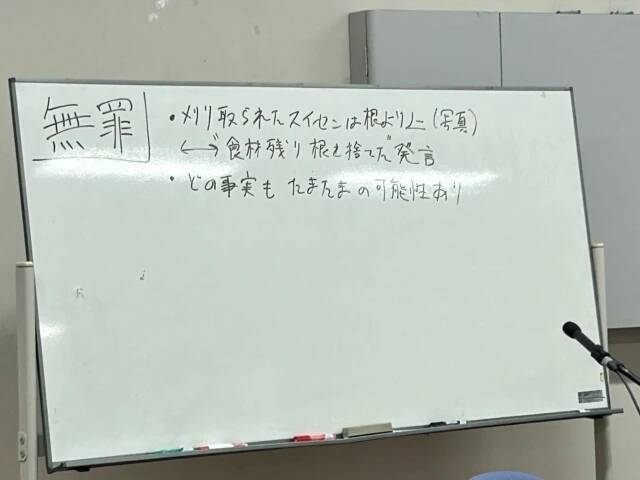 無罪
・刈り取られたスイセンは根より上(写真)
↔ 食材残り 根も捨てた"発言
・どの事実も たまたまの可能性あり